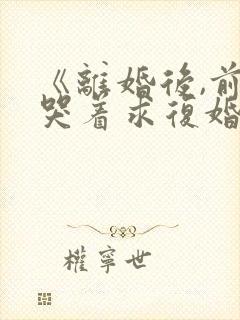 《離婚後,前
哭着求復婚
權寧世